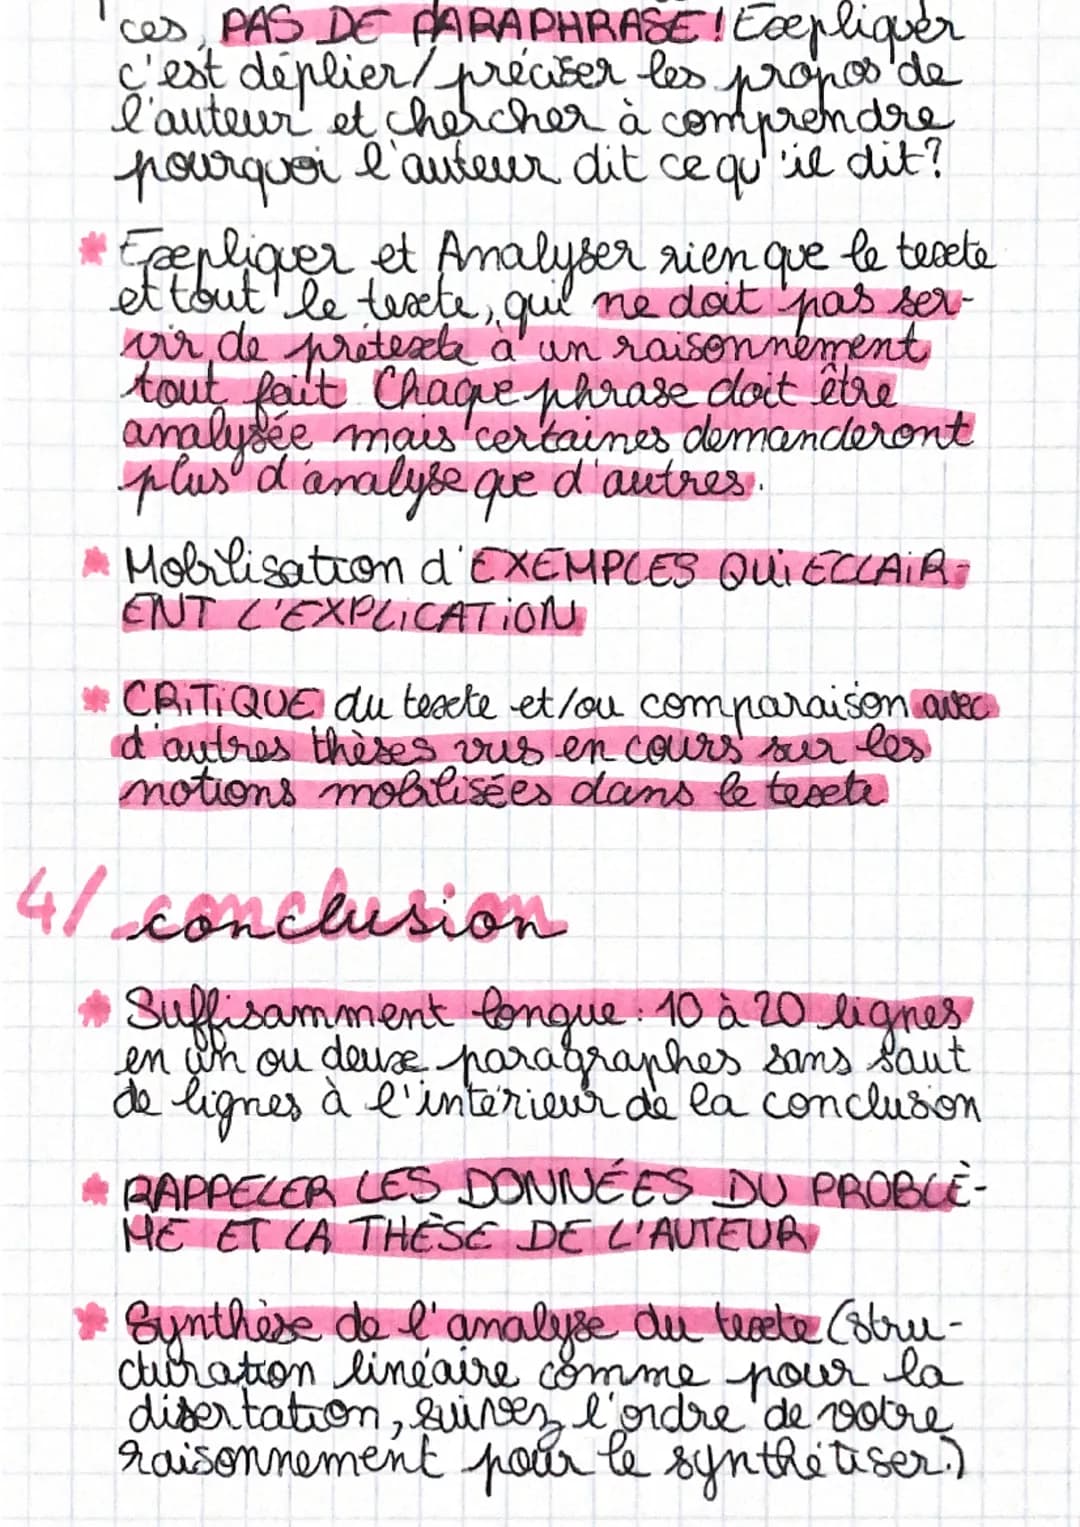 ces, PAS DE PARAPHRASE! Expliquer
c'est déplier/préciser les propos de
l'auteur et chercher à comprendre
pourquoi l'auteur dit ce qu'il dit?
* Expliquer et Analyser rien que le texte
et tout le texte, qui ne doit pas ser-
vir de prétexte à un raisonnement
tout fait. Chaque phrase doit être
analysée mais certaines demanderont
plus d'analyse que d'autres.
* Mobilisation d'EXEMPLES QUi ECLAiR-
ENT L'EXPLiCATiON
* CRiTiQUE du texte et/ou comparaison avec
d'autres thèses vus en cours sur les
notions mobilisées dans le texte
4/ conclusion
* Suffisamment longue: 10 à 20 lignes
en un ou deux paragraphes sans saut
de lignes à l'intérieur de la conclusion
* RAPPELER LES DONNÉES DU PROBLÈ-
ME ET LA THÈSE DE L'AUTEUR
* Synthèse de l'analyse du texte (stru-
cturation linéaire comme pour la
disertation, suivez l'ordre de votre
raisonnement pour le synthétiser.)